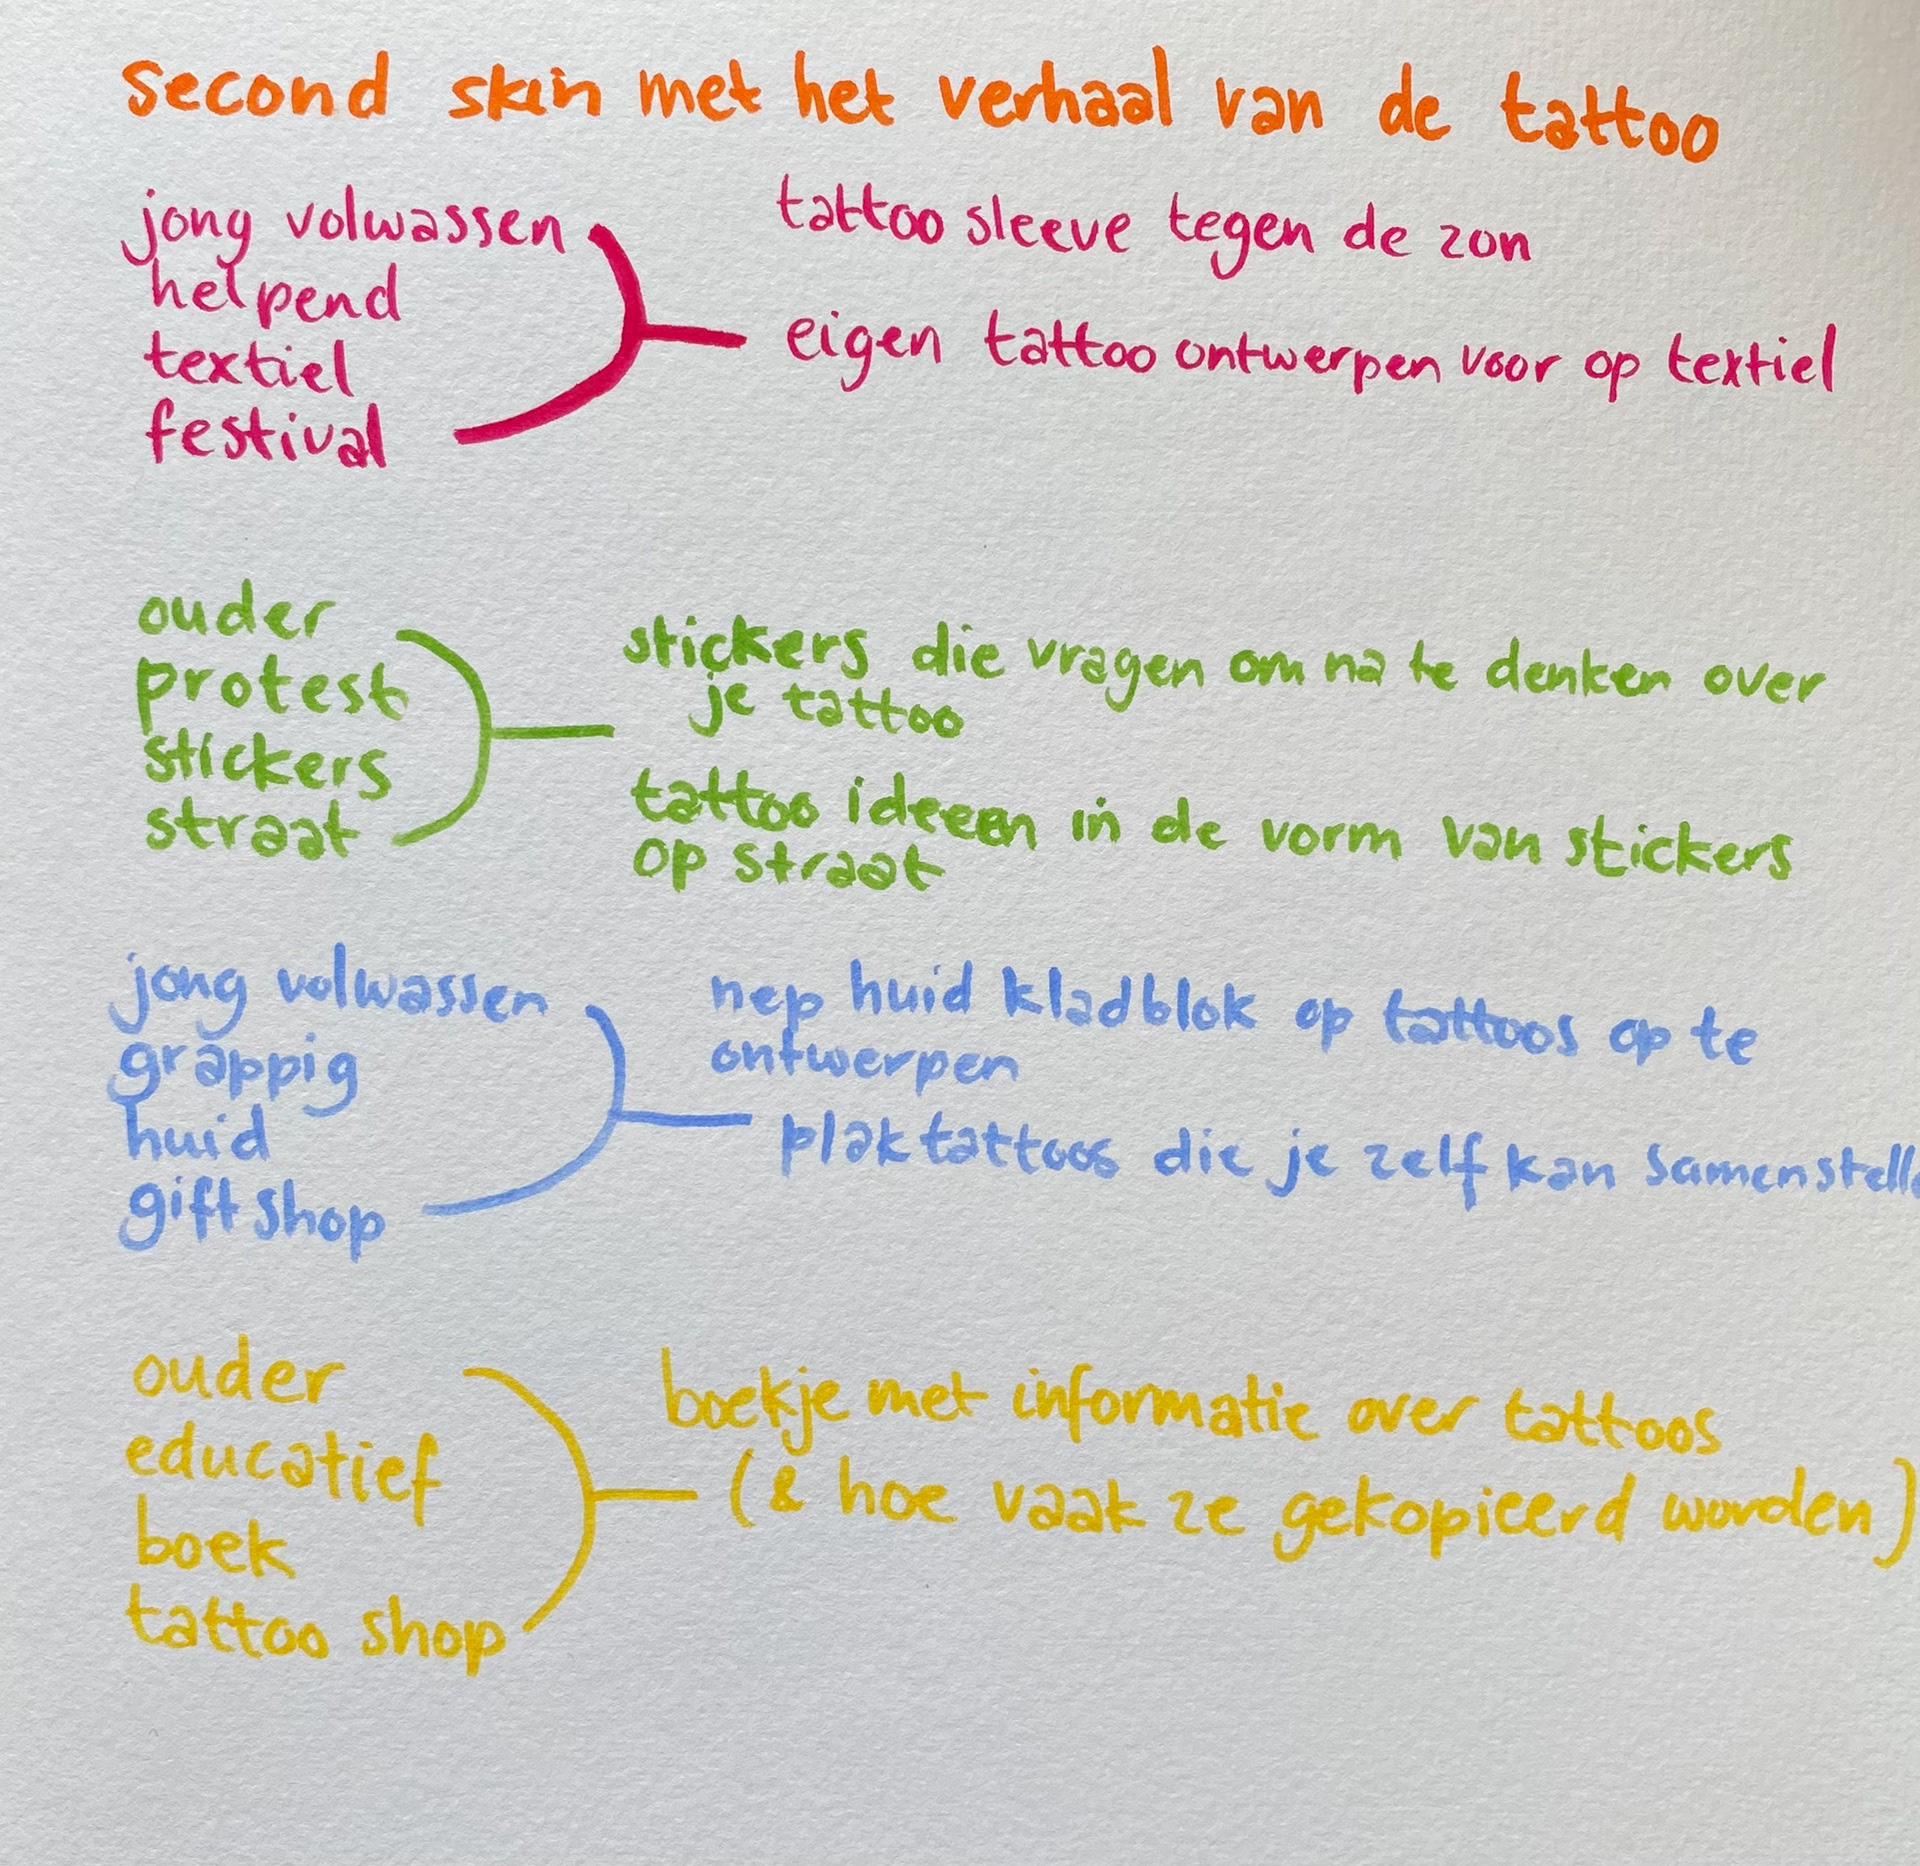 second skin met het verhaal van de tattoo
jong volwassen
helpend
textiel
festival
tattoo sleeve tegen de zon
eigen tattoo ontwerpen voor op textiel
ouder
protest
stickers
straat
stickers die vragen om na te denken over
je tattoo
tattoo ideeen in de vorm van stickers
op straat
jong volwassen
grappig
huid
gift shop
nep huid kladblok op tattoos op te
ontwerpen
plaktattoos die je zelf kan samenstelle
ouder
educatief
boek
tattoo shop
boekje met informatie over tattoos
(& hoe vaak ze gekopieerd worden)